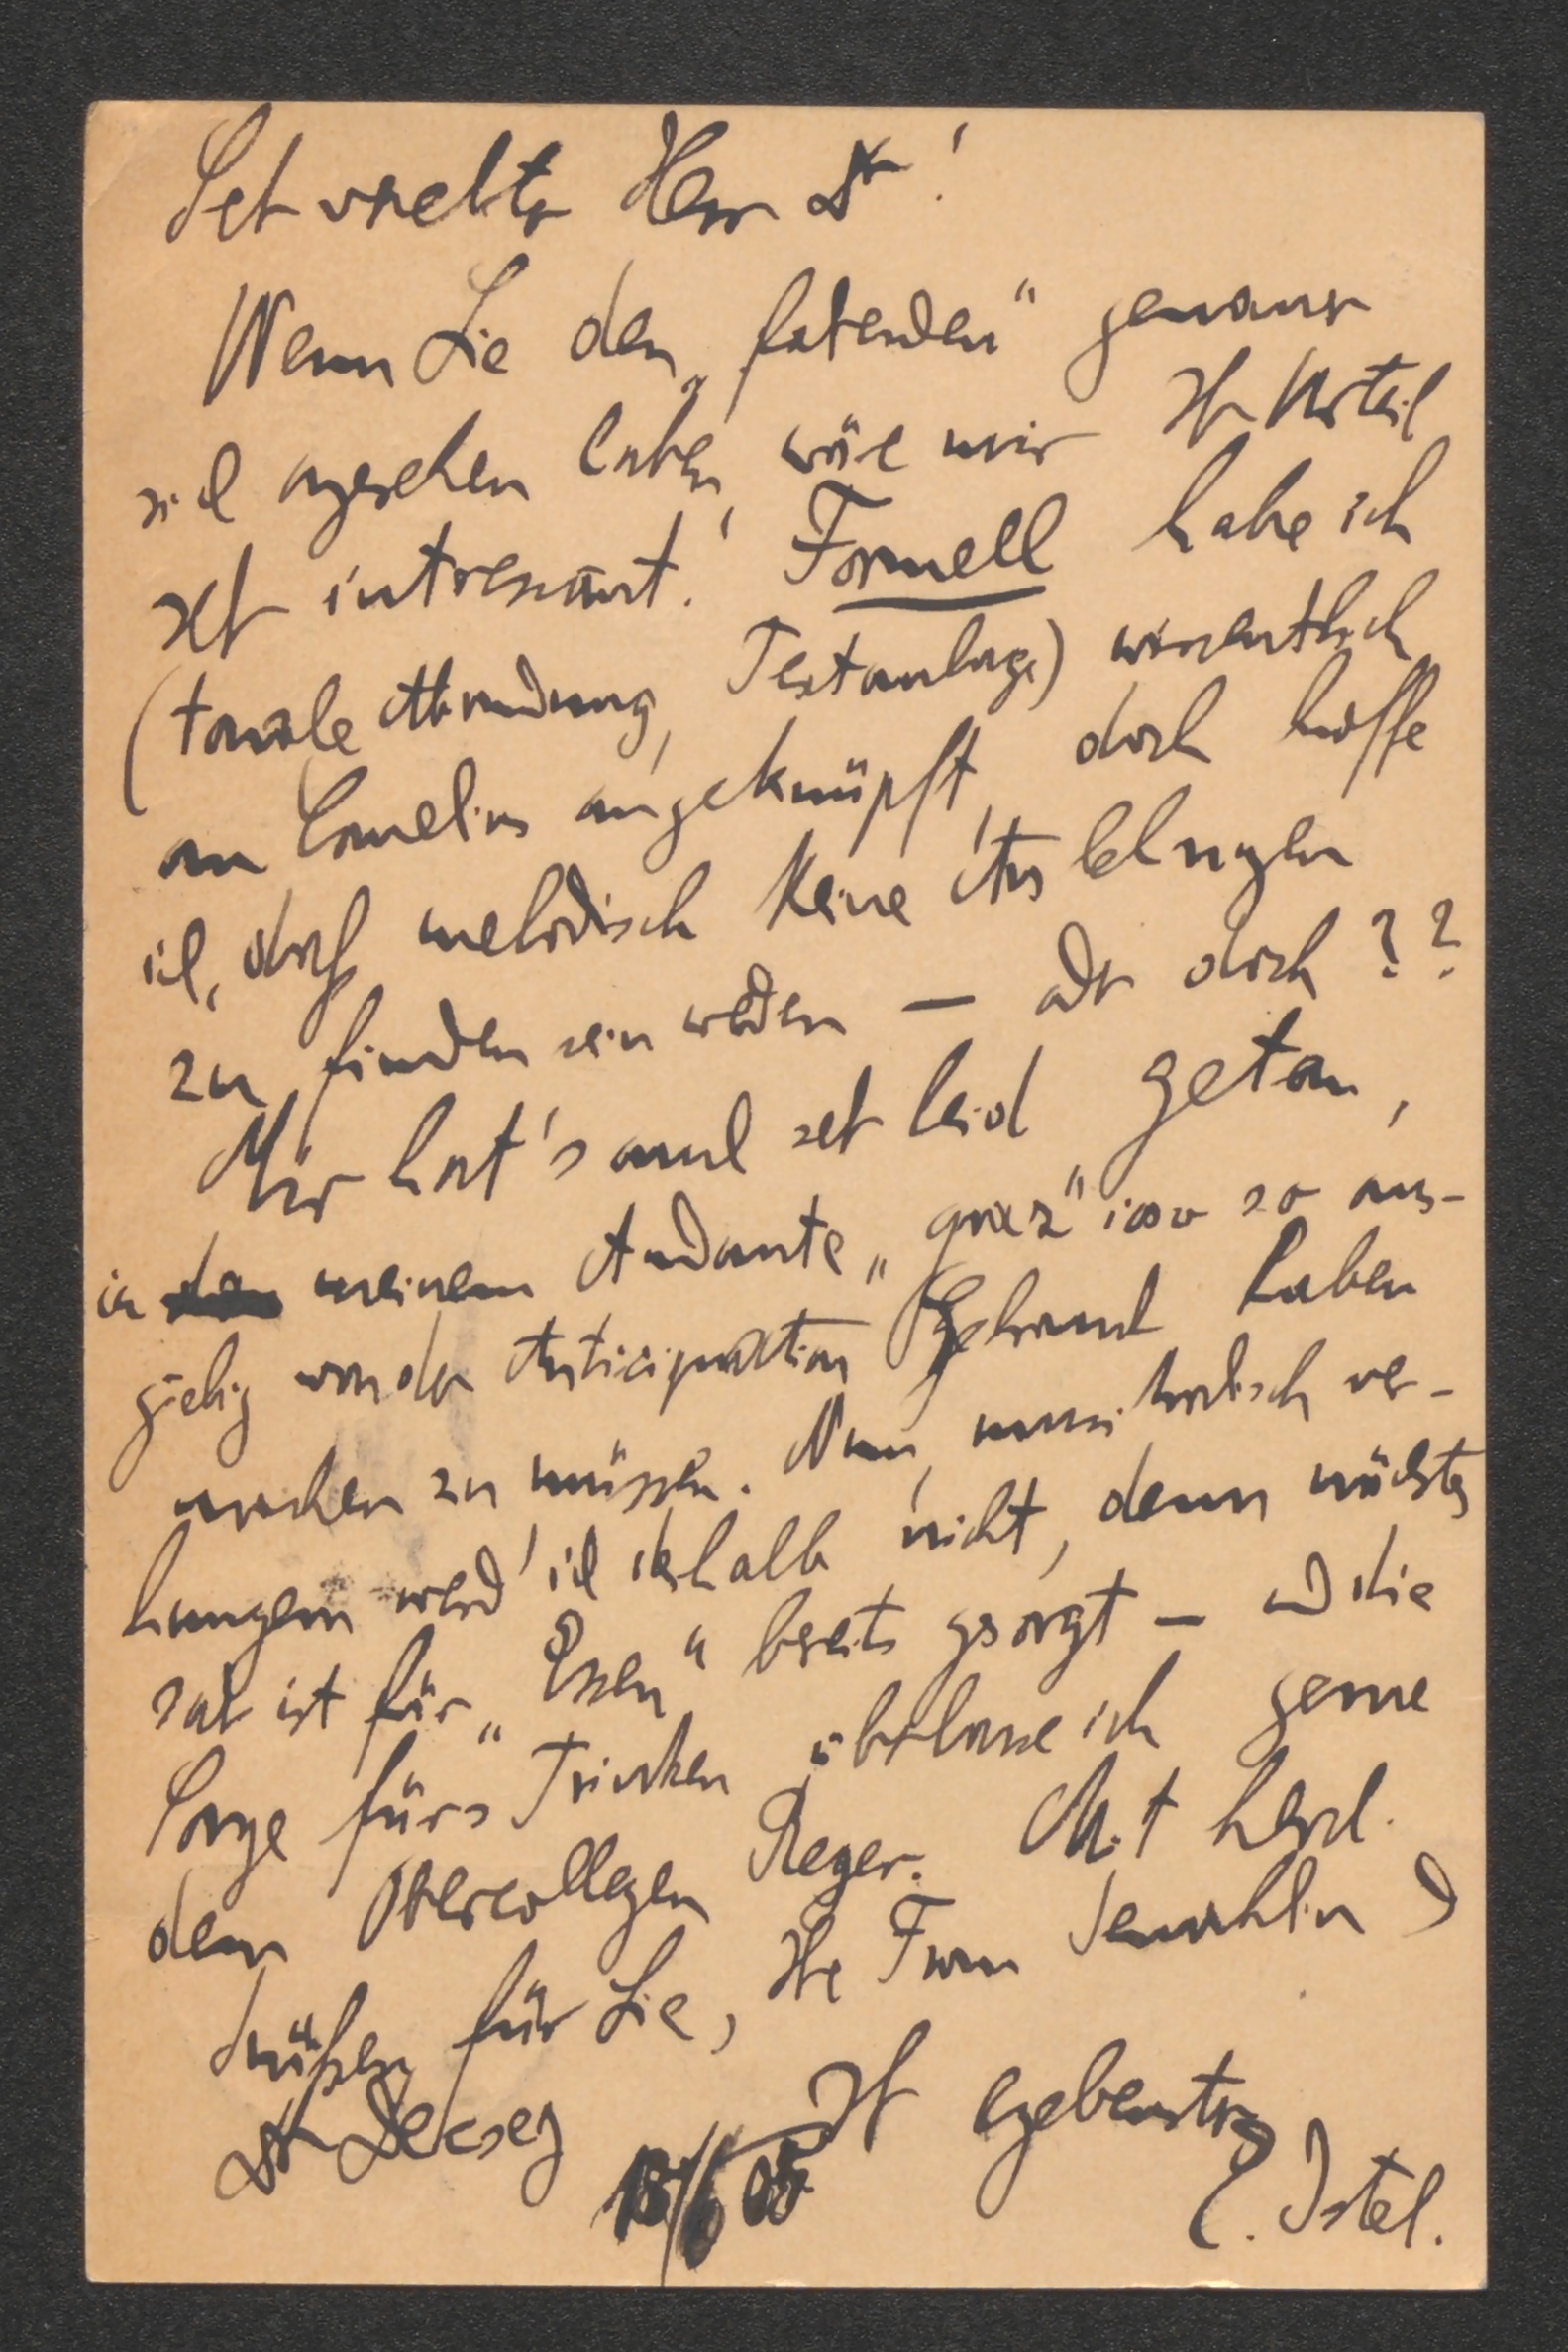 Sehr verehrter Herr Dr!
Wenn Sie den „fahrenden" genauer
sich angesehen haben, wäre mir Ihr Urteil
sehr interessant! Formell habe ich
(tonale Abrundung, Textanlage) wissentlich
an Cornelius angeknüpft, doch hoffe
ich, dass melodisch keine Anlehnungen
zu finden sein werden — oder doch??
Mir hat's auch sehr leid getan,
in meinem Andante „graz" ioso so aus-
giebig von der Anticipation Gebrauch haben
machen zu müssen. Nun, musikalisch ver-
hungern werd' ich deshalb nicht, denn nächstes
Jahr ist für „Essen" bereits gesorgt — und die
Sorge fürs Trinken überlasse ich gerne
dem Obercollegen Reger. Mit herzl.
Grüßen für Sie, Ihre Frau Gemahlin &
Dr Decsey Ihr ergebenster
18/6 05 E. Istel.